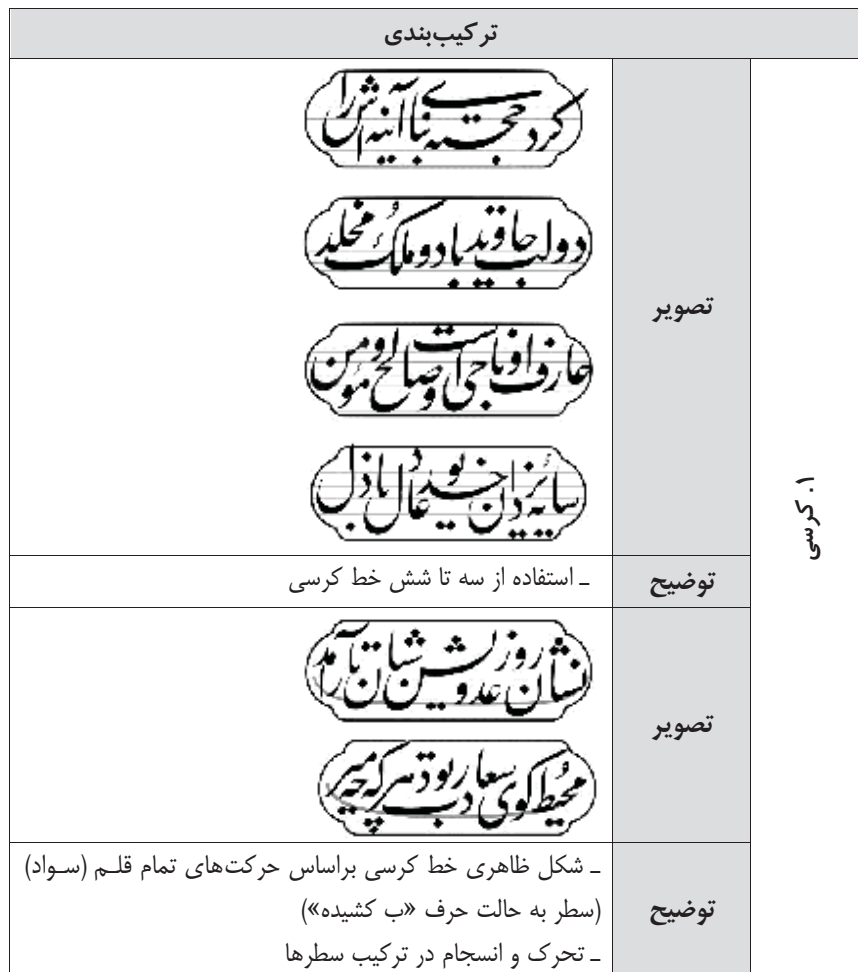 ترکیب‌بندی
۱. کرسی
تصویر
کرد
بنا آینه اش را
دولت جاوید باد و ملک مخلد
عارف او ناجی است و صالح و مؤمن
سایه یزدان خدیو عادل باذل
توضیح
ـ استفاده از سه تا شش خط کرسی
تصویر
محیط کوی سعا
توضیح
ـ شکل ظاهری خط کرسی براساس حرکت‌های تمام قلـم (سـواد)
(سطر به حالت حرف «ب کشیده»)
ـ تحرک و انسجام در ترکیب سطرها